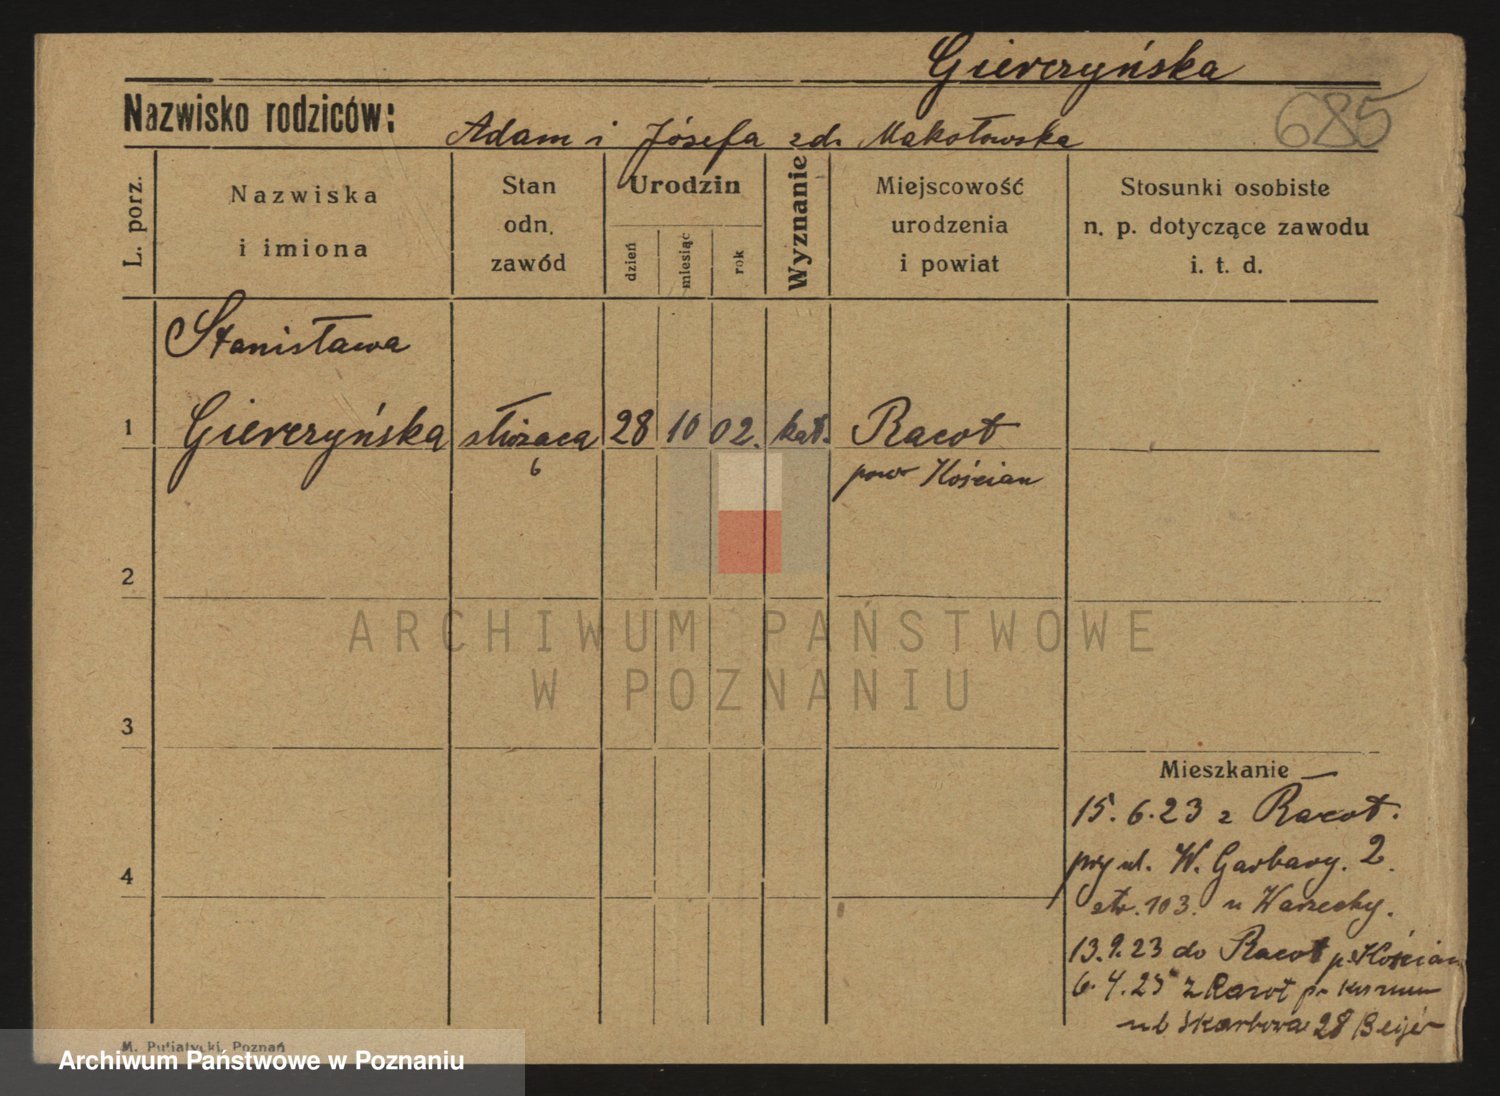 Gierczyńska
685
Nazwisko rodziców: Adam i Józefa zd. Makołowska
L. porz.
Nazwiska i imiona
Stan odn. zawód
Urodzin
dzień
miesiąc
rok
Wyznanie
Miejscowość urodzenia i powiat
Stosunki osobiste n. p. dotyczące zawodu i. t. d.
Stanisława
1 Gierczyńska służąca 28 10 02. kat. Racot
pow Kościan
2
ARCHIWUM PAŃSTWOWE
W POZNANIU
3
Mieszkanie
15.6.23 z Racot.
przy ul. W. Garbary. 2.
4
str. 103. u Warzechy.
13.9.23 do Racot p. Kościan
6.4.25 z Racot p.
ul Skarbowa 28
M. Putiatycki, Poznań
Archiwum Państwowe w Poznaniu